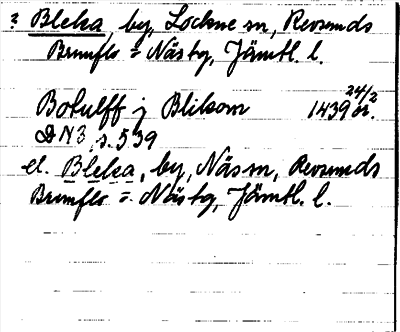 ? Bleka, by, Lockne sn, Revsunds
Brunflo = Näs tg, Jämtl. l.
Botulff j Blikom 1439 24/2 or.
DN 3, s. 539
el. Bleka, by, Näs sn, Revsunds
Brunflo = Näs tg, Jämtl. l.